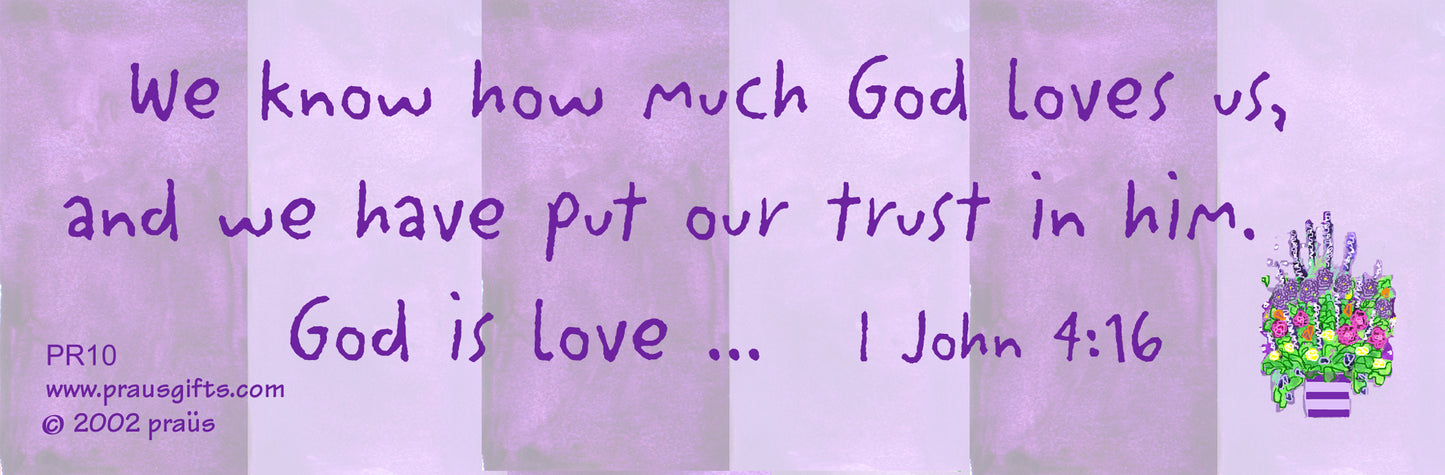 We know how much God loves us,
and we have put our trust in him.
God is love ... 1 John 4:16
PR10
www.prausgifts.com
© 2002 praüs